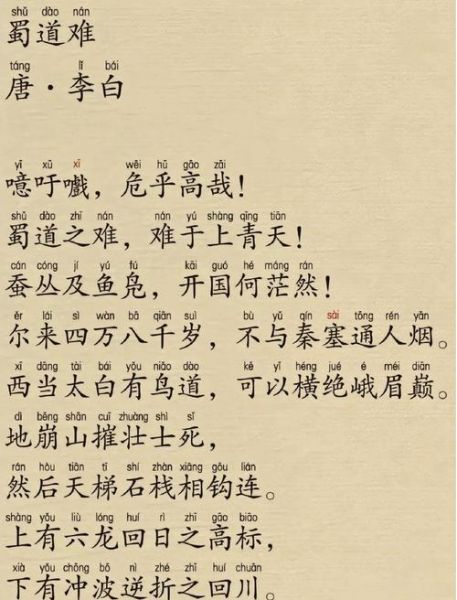 shǔ dào nán
蜀道难
táng lǐ bái
唐·李白
yī xū xī wēi hū gāo zāi
噫吁嚱，危乎高哉！
shǔ dào zhī nán nán yú shàng qīng tiān
蜀道之难，难于上青天！
cán cóng jí yú fú kāi guó hé máng rán
蚕丛及鱼凫，开国何茫然！
ěr lái sì wàn bā qiān suì bù yǔ qín sài tōng rén yān
尔来四万八千岁，不与秦塞通人烟。
xī dāng tài bái yǒu niǎo dào kě yǐ héng jué é méi diān
西当太白有鸟道，可以横绝峨眉巅。
dì bēng shān cuī zhuàng shì sǐ
地崩山摧壮士死，
rán hòu tiān tī shí zhàn xiāng gōu lián
然后天梯石栈相钩连。
shàng yǒu liù lóng huí rì zhī gāo biāo
上有六龙回日之高标，
xià yǒu chōng bō nì zhé zhī huí chuān
下有冲波逆折之回川。